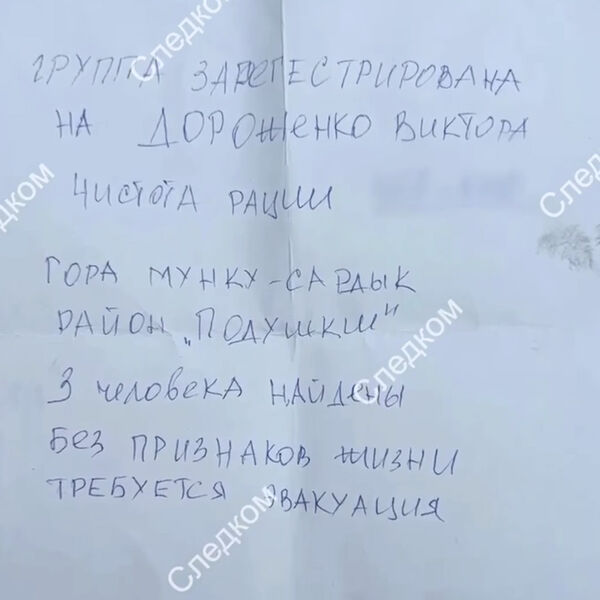 ГРУППА ЗАРЕГЕСТРИРОВАНА
НА ДОРОЖЕНКО ВИКТОРА
ЧИСТОТА РАЦИИ
ГОРА МУНКУ-САРДЫК
РАЙОН „ПОДУШКИ"
3 ЧЕЛОВЕКА НАЙДЕНЫ
БЕЗ ПРИЗНАКОВ ЖИЗНИ
ТРЕБУЕТСЯ ЭВАКУАЦИЯ
Следком
Следком
Следком
Следком
Следком